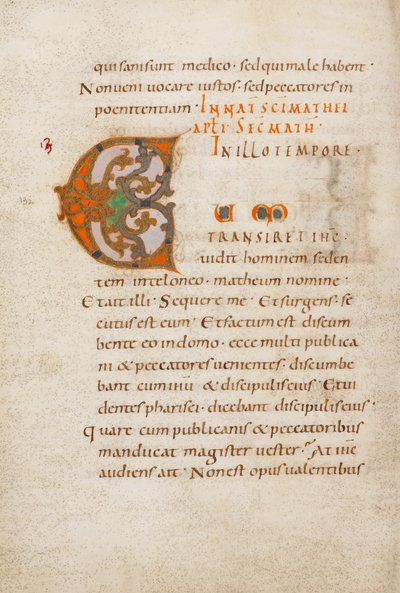 qui sani sunt medico · sed qui male habent ·
Non veni vocare iustos · sed peccatores in
poenitentiam · IN NAT SCI MATHEI
APLI SEC MATH ·
IN ILLO TEMPORE ·
132
CUM
TRANSIRET IHC ·
vidit hominem seden
tem in teloneo · matheum nomine ·
Et ait illi · Sequere me · Et surgens · se
cutus est eum · Et factum est discum
bente eo in domo · ecce multi publica
ni & peccatores venientes · discumbe
bant cum ihu & discipulis eius · Et vi
dentes pharisei · dicebant discipulis eius ·
Quare cum publicanis & peccatoribus
manducat magister vester · At ihc
audiens ait · Non est opus valentibus